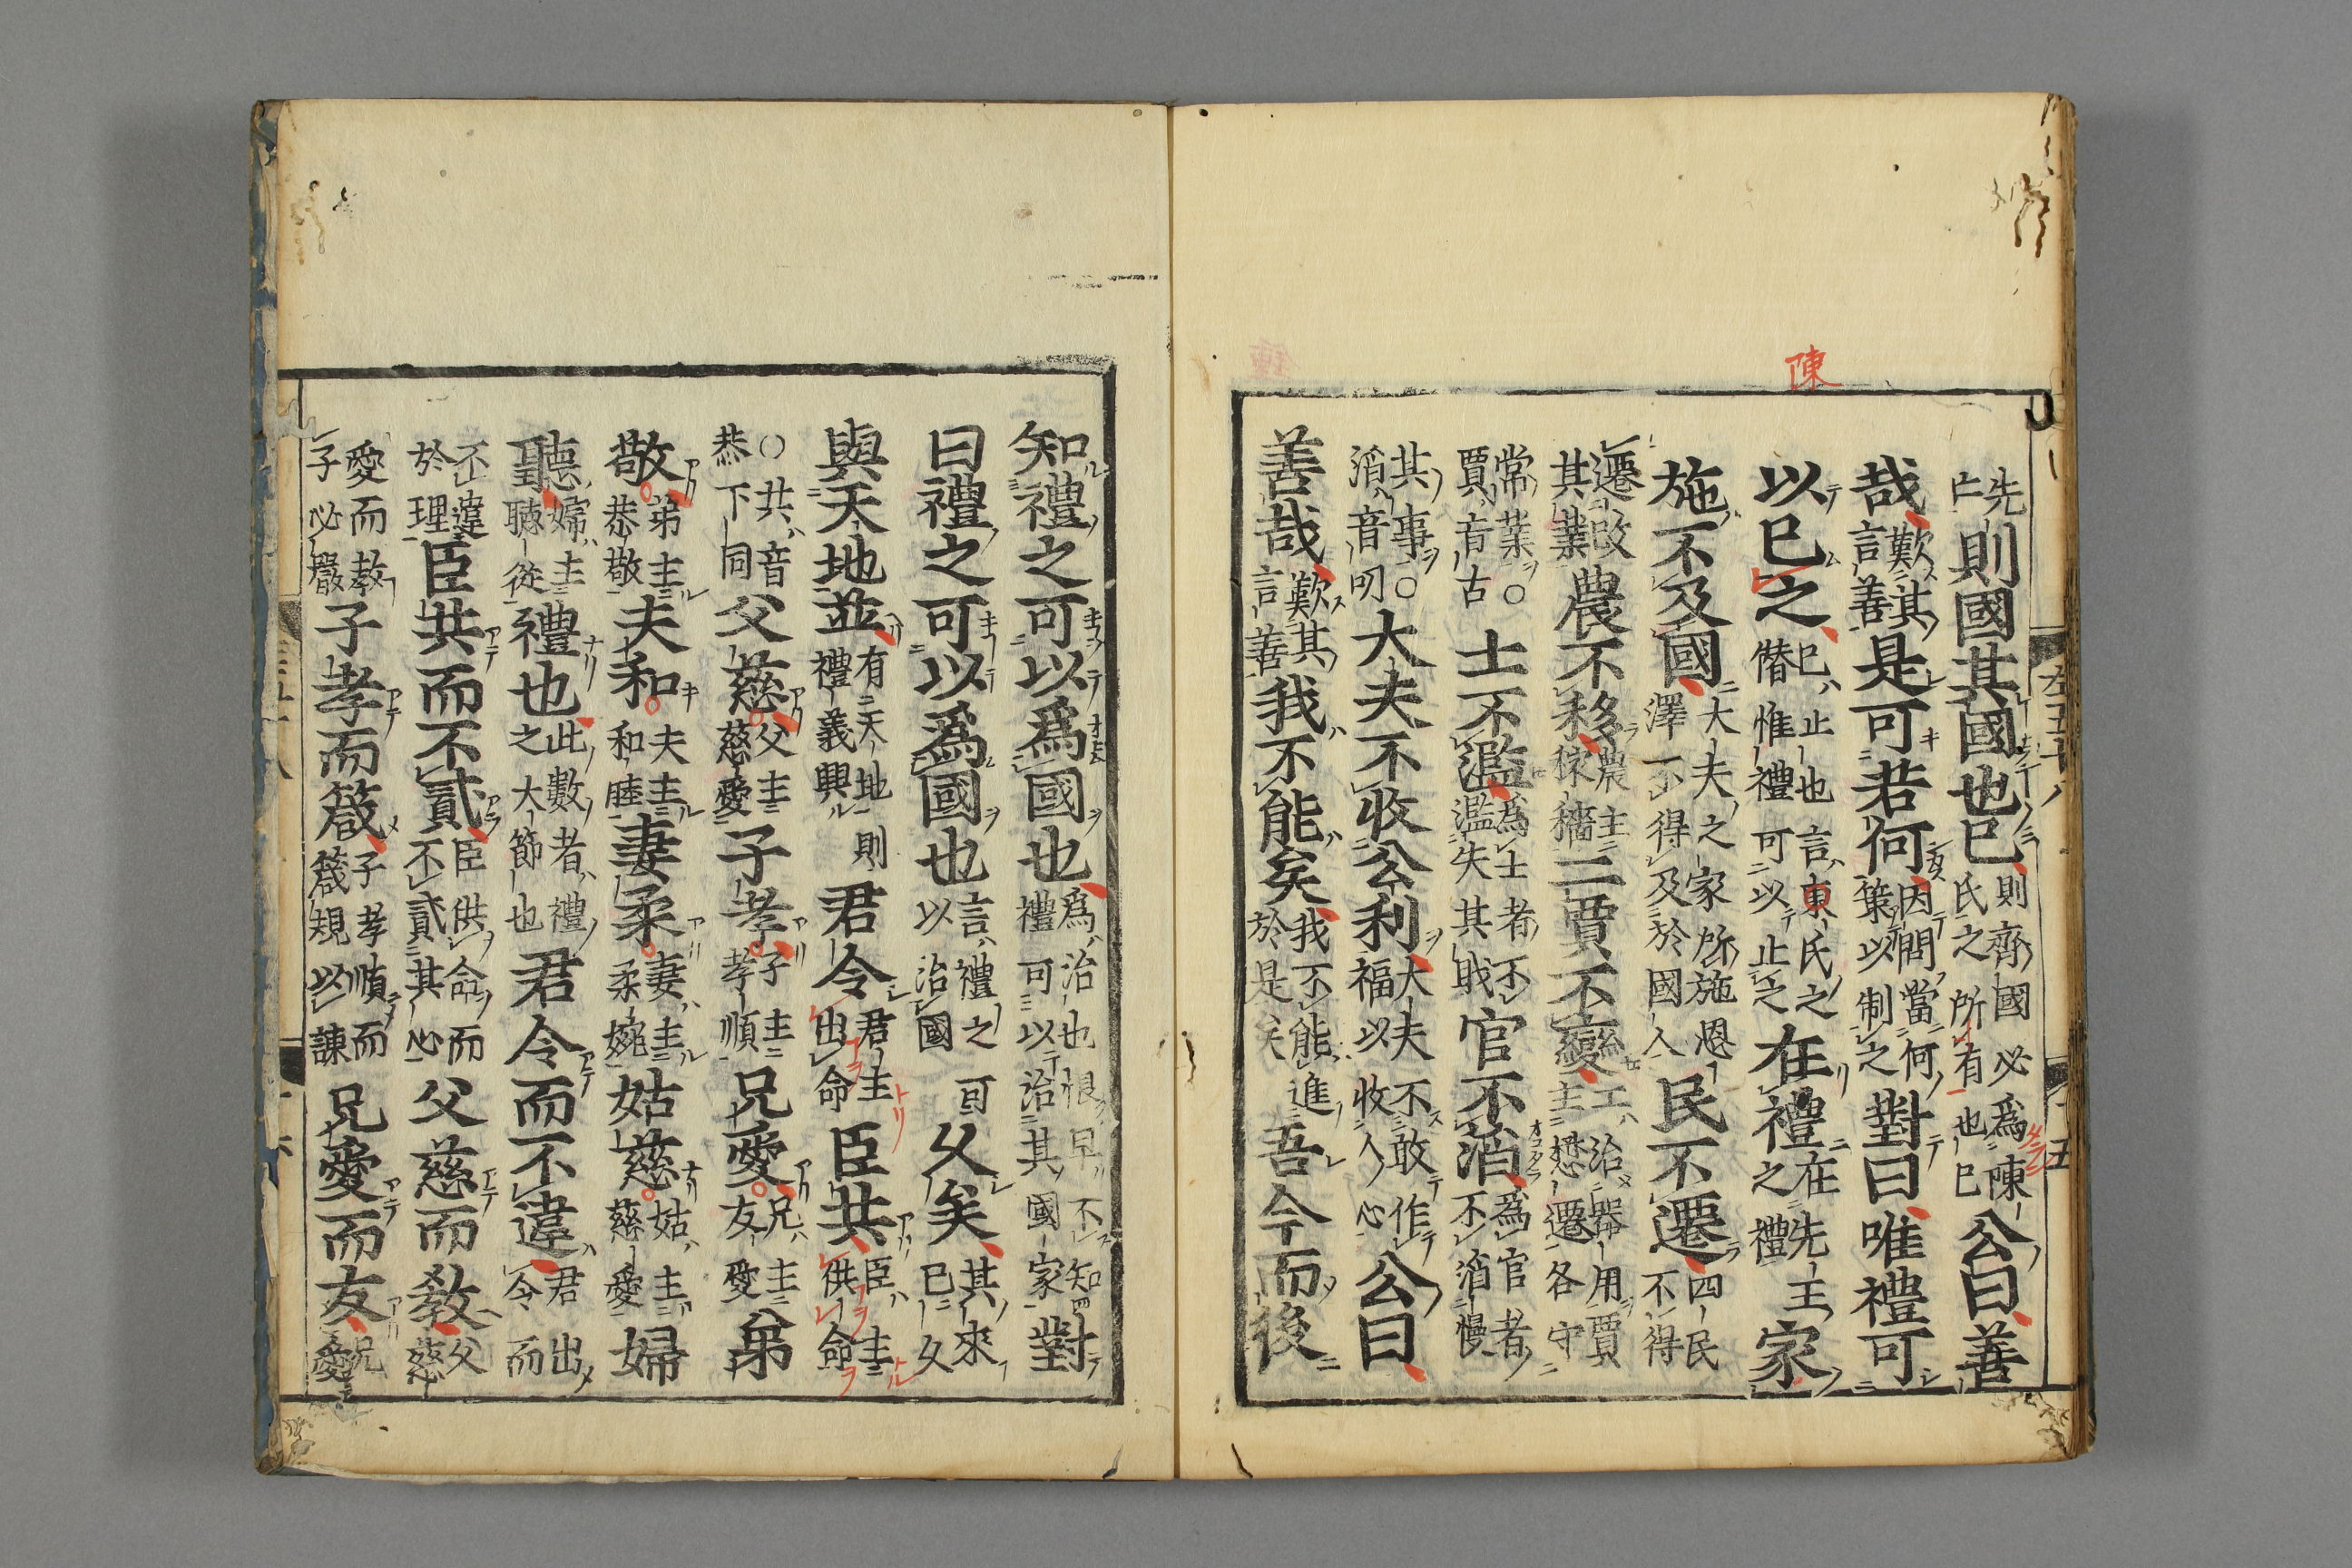 陳
先亡則國其國也已則齊國必爲陳氏之所有也已公曰善
哉歎其言善是可若何因問當何策以制之對曰唯禮可
以已之已止也言東氏之僭惟禮可以止之在禮在先王之禮家
施不及國大夫之家所施恩澤不得及於國人民不遷四民不得
遷改其業農不移農主稼穡工賈不變工治器用賈主懋遷各守
常業○賈音古士不濫爲士者不濫失其職官不滔爲官者不滔慢
其事○滔音叨大夫不收公利大夫不敢作福以收人心公曰
善哉歎其言善我不能矣我不能進於是矣吾今而後
左五十八
十五
知禮之可以爲國也爲治也恨早不知禮可以治其國家對
曰禮之可以爲國也言禮之可以治國久矣其來已久
與天地並有天地則禮義興君令君主出命臣共臣主供命
○共音恭下同父慈父主慈愛子孝子主孝順兄愛兄主友愛弟
敬弟主恭敬夫和夫主和睦妻柔妻主柔婉姑慈姑主慈愛婦
聽婦主聽從禮也此數者禮之大節也君令而不違君出令而
不違於理臣共而不貳臣供命而不貳其心父慈而教父慈
愛而教子必嚴子孝而箴子孝順而箴規以諫兄愛而友兄愛